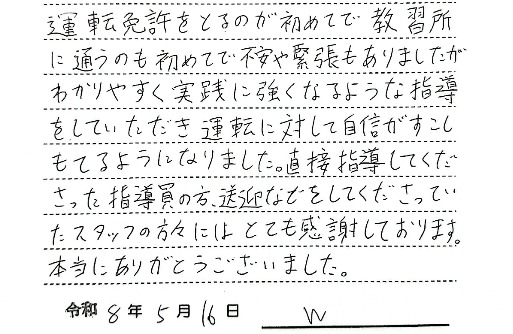 運転免許をとるのが初めてで教習所
に通うのも初めてで不安や緊張もありましたが
わかりやすく実践に強くなるような指導
をしていただき運転に対して自信がすこし
もてるようになりました。直接指導してくだ
さった指導員の方、送迎などをしてくださってい
たスタッフの方々にはとても感謝しております。
本当にありがとうございました。
令和 8 年 5 月 16 日 W